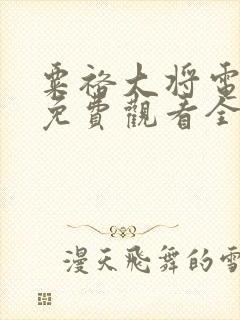 粟裕大将電
免費觀看全
漫天飛舞的雪